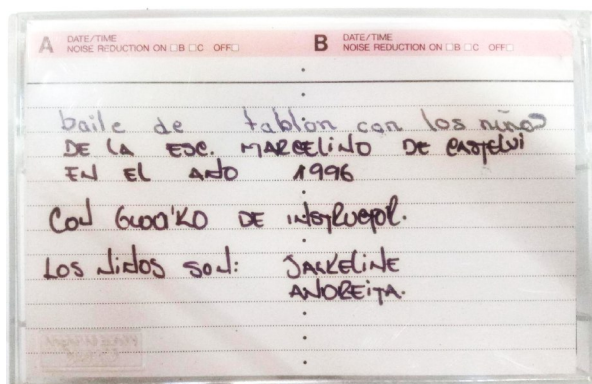 A DATE/TIME
NOISE REDUCTION ON □B □C OFF□
B DATE/TIME
NOISE REDUCTION ON □B □C OFF□
baile de tablón con los niños
DE LA ESC. MARCELINO DE CASTELVI
EN EL AÑO 1996
CON DE INSTRUCTOR.
LOS NIÑOS SON: JAKELINE
ANDREITA.